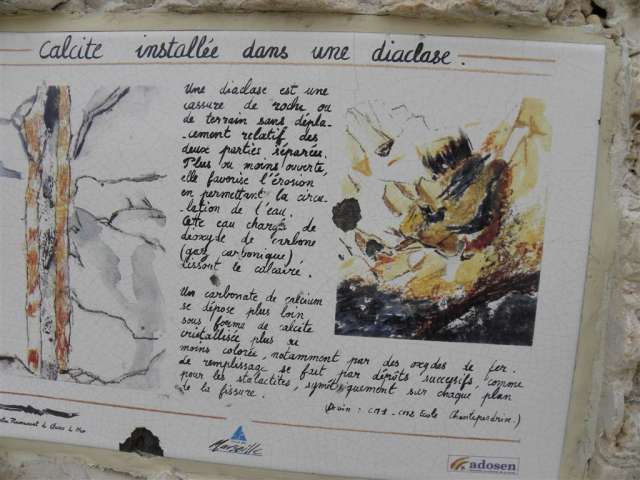 Calcite installée dans une diaclase.
Une diaclase est une
cassure de roche ou
de terrain sans dépla-
-cement relatif des
deux parties séparées.
Plus ou moins ouverte,
elle favorise l'érosion
en permettant la circu-
-lation de l'eau.
Cette eau chargée de
dioxyde de carbone
(gaz carbonique)
dissout le calcaire.
Un carbonate de calcium
se dépose plus loin
sous forme de calcite
cristallisée plus ou
moins colorée, notamment par des oxydes de fer.
Le remplissage se fait par dépôts successifs, comme
pour les stalactites, symétriquement sur chaque plan
de la fissure.
Marseille
adosen